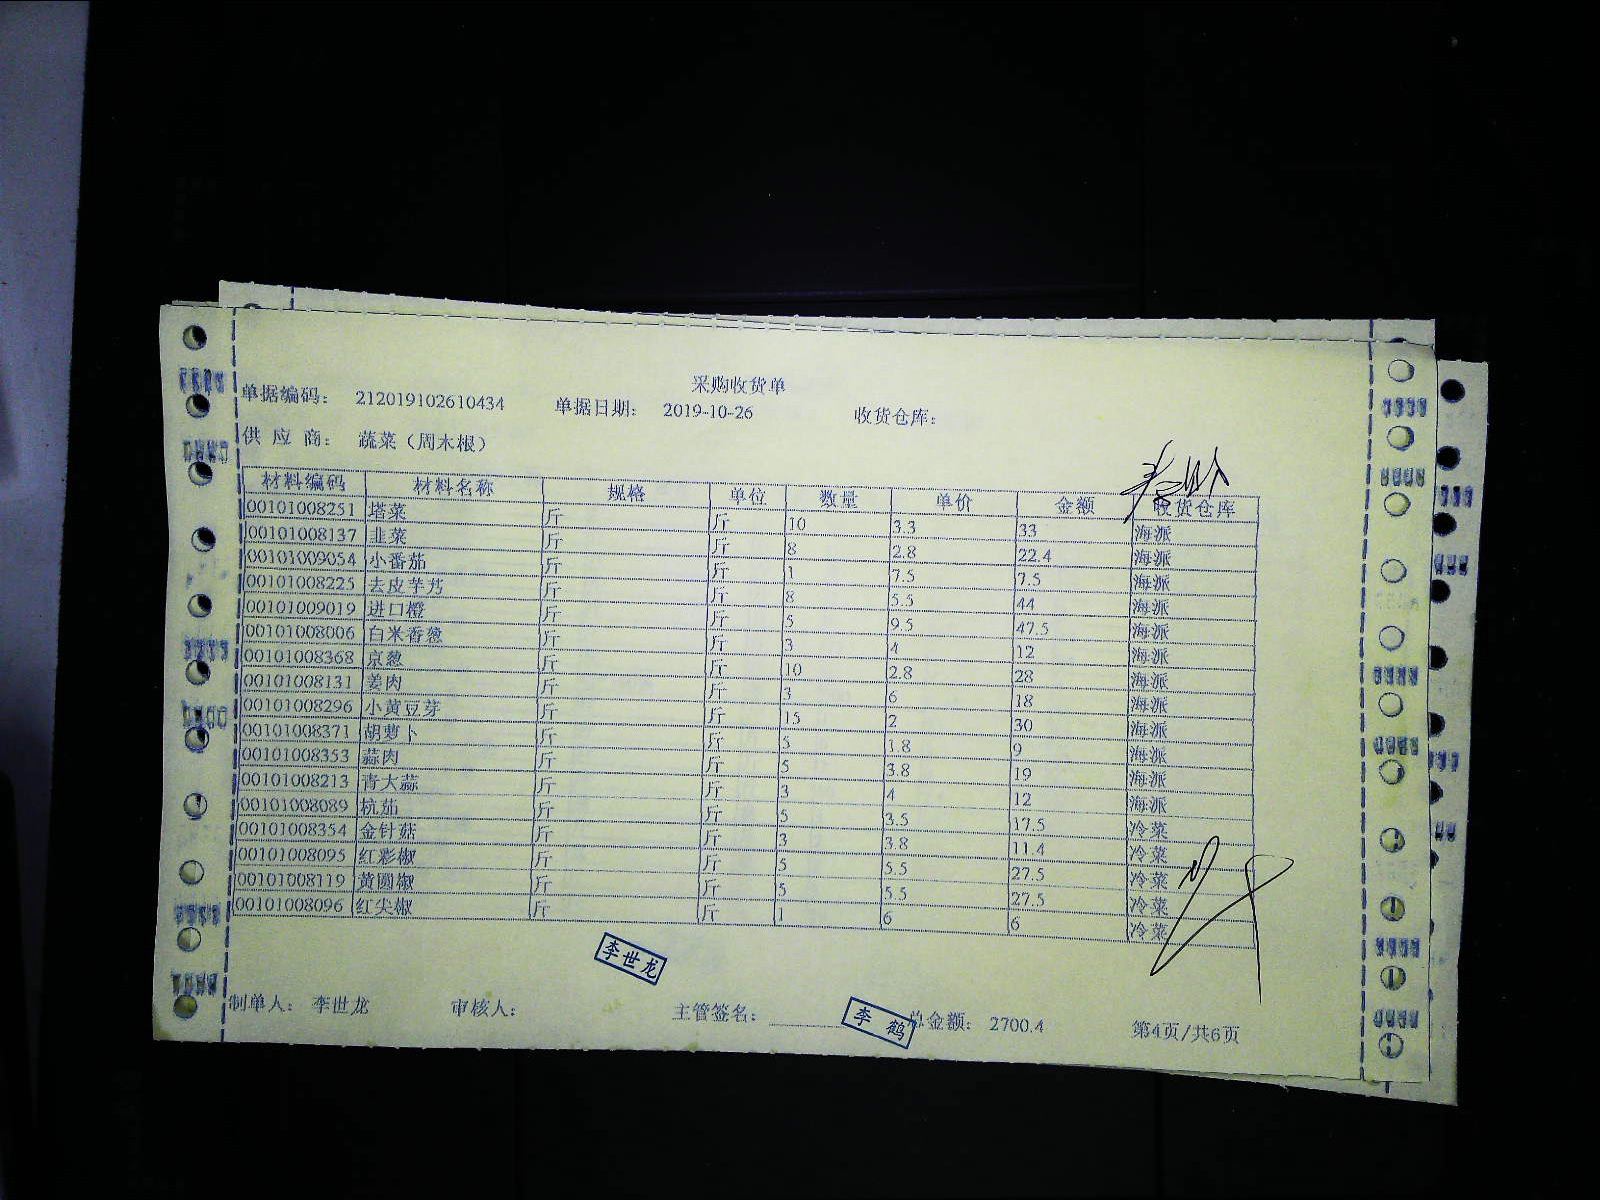 采购收货单
单据编码： 212019102610434 单据日期： 2019-10-26 收货仓库：
供 应 商： 蔬菜（周木根）
材料编码 材料名称 规格 单位 数量 单价 金额 收货仓库
00101008251 塔菜 斤 斤 10 3.3 33 海派
00101008137 韭菜 斤 斤 8 2.8 22.4 海派
00101009054 小番茄 斤 斤 1 7.5 7.5 海派
00101008225 去皮芋艿 斤 斤 8 5.5 44 海派
00101009019 进口橙 斤 斤 5 9.5 47.5 海派
00101008006 白米香葱 斤 斤 3 4 12 海派
00101008368 京葱 斤 斤 10 2.8 28 海派
00101008131 姜肉 斤 斤 3 6 18 海派
00101008296 小黄豆芽 斤 斤 15 2 30 海派
00101008371 胡萝卜 斤 斤 5 1.8 9 海派
00101008353 蒜肉 斤 斤 5 3.8 19 海派
00101008213 青大蒜 斤 斤 3 4 12 海派
00101008089 杭茄 斤 斤 5 3.5 17.5 冷菜
00101008354 金针菇 斤 斤 3 3.8 11.4 冷菜
00101008095 红彩椒 斤 斤 5 5.5 27.5 冷菜
00101008119 黄圆椒 斤 斤 5 5.5 27.5 冷菜
00101008096 红尖椒 斤 斤 1 6 6 冷菜
李世龙
制单人： 李世龙 审核人： 主管签名： 李 鹤 总金额： 2700.4 第4页/共6页